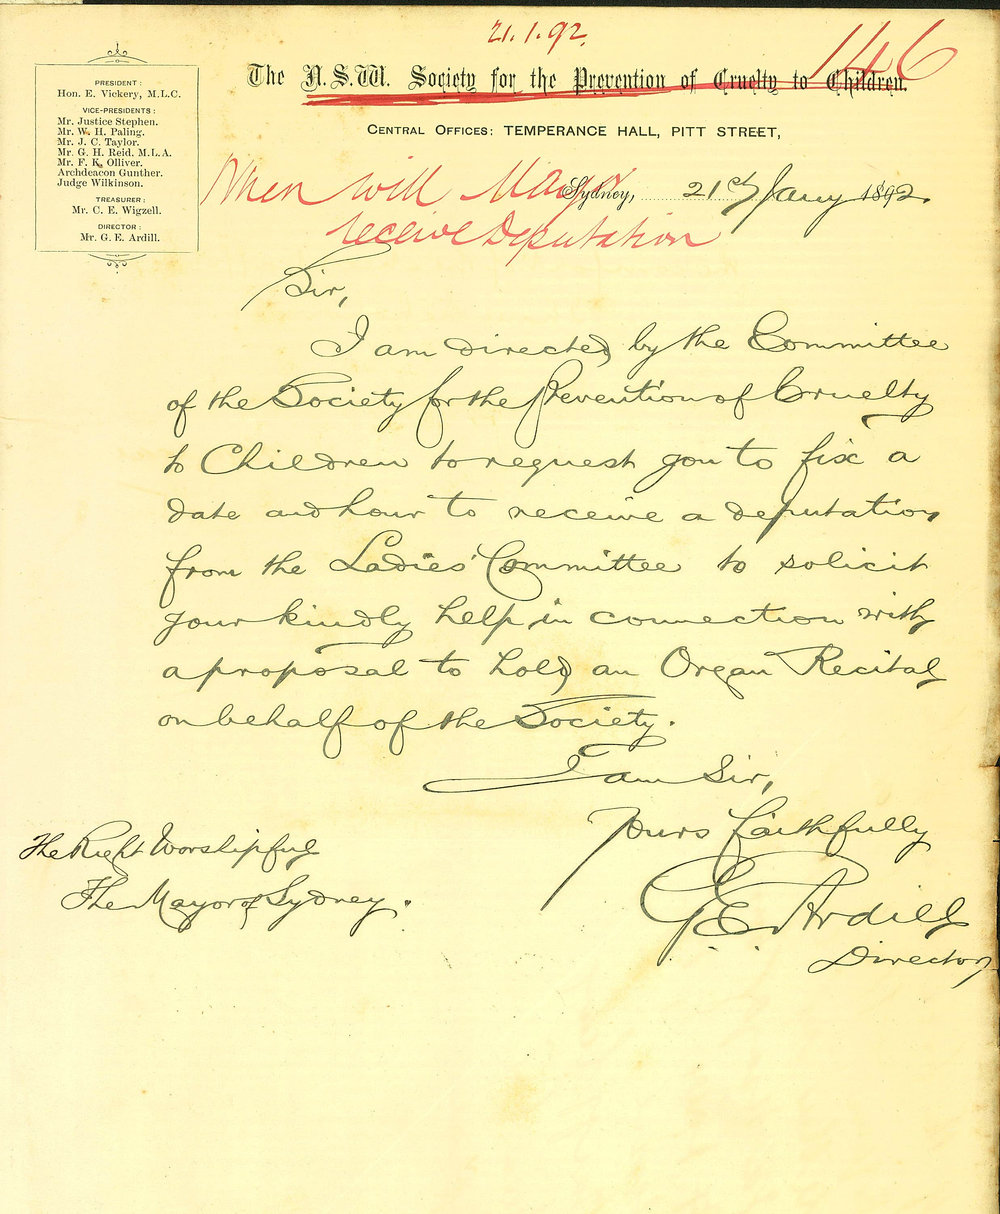 21.1.92.
146
The N.S.W. Society for the Prevention of Cruelty to Children.
CENTRAL OFFICES: TEMPERANCE HALL, PITT STREET,
PRESIDENT:
Hon. E. Vickery, M.L.C.
VICE-PRESIDENTS:
Mr. Justice Stephen.
Mr. W. H. Paling.
Mr. J. C. Taylor.
Mr. G. H. Reid, M.L.A.
Mr. F. K. Olliver.
Archdeacon Gunther.
Judge Wilkinson.
TREASURER:
Mr. C. E. Wigzell.
DIRECTOR:
Mr. G. E. Ardill.
When will Mayor
receive Deputation
Sydney, 21st Jany 1892.
Sir,
I am directed by the Committee
of the Society for the Prevention of Cruelty
to Children to request you to fix a
date and hour to receive a deputation
from the Ladies' Committee to solicit
your kindly help in connection with
a proposal to hold an Organ Recital
on behalf of the Society.
I am Sir,
Yours faithfully
G. E. Ardill
Director
The Right Worshipful
The Mayor of Sydney.